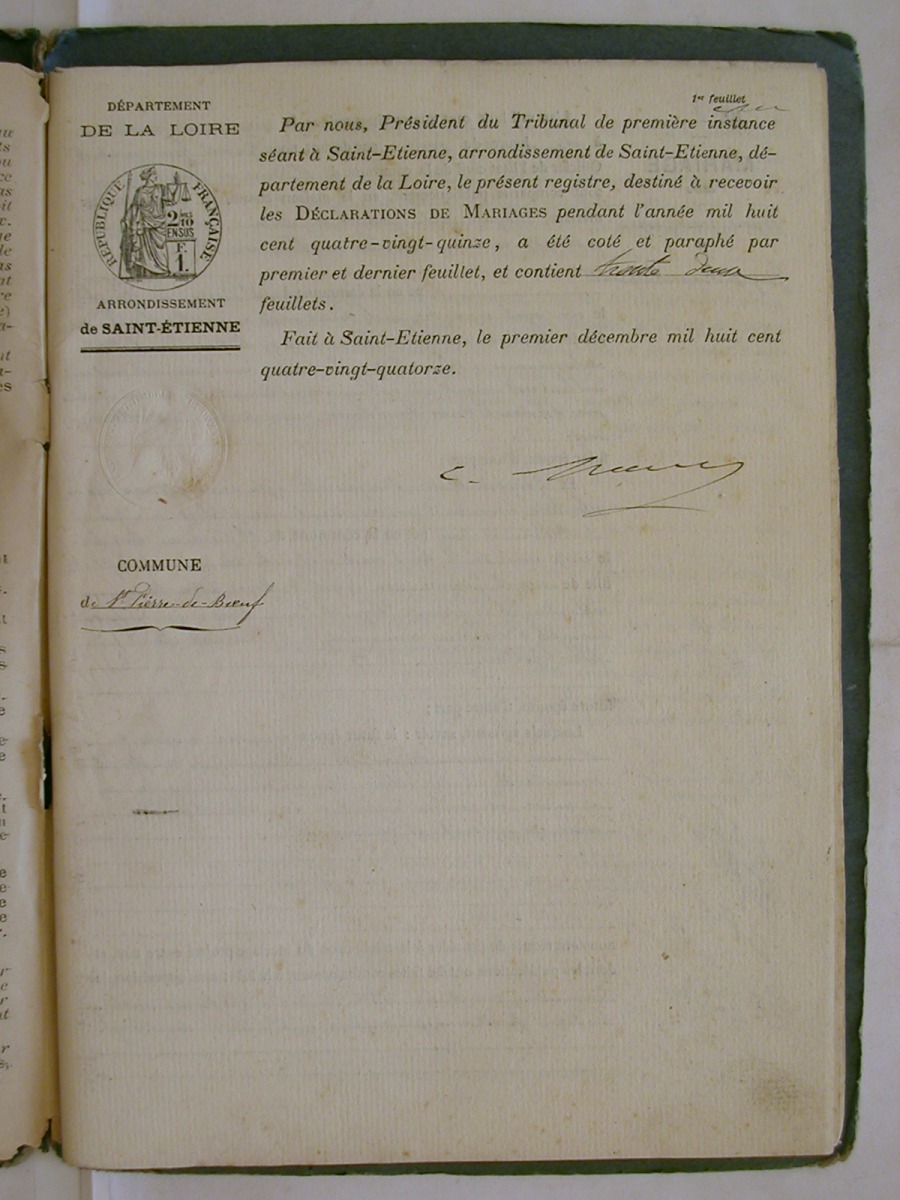 1er feuillet
DÉPARTEMENT
DE LA LOIRE
RÉPUBLIQUE FRANÇAISE
2/10 EN SUS
F.
1.
ARRONDISSEMENT
de SAINT-ÉTIENNE
Par nous, Président du Tribunal de première instance
séant à Saint-Etienne, arrondissement de Saint-Etienne, dé-
partement de la Loire, le présent registre, destiné à recevoir
les DÉCLARATIONS DE MARIAGES pendant l'année mil huit
cent quatre-vingt-quinze, a été coté et paraphé par
premier et dernier feuillet, et contient trente deux
feuillets.
Fait à Saint-Etienne, le premier décembre mil huit cent
quatre-vingt-quatorze.
COMMUNE
de St Pierre-de-Bœuf